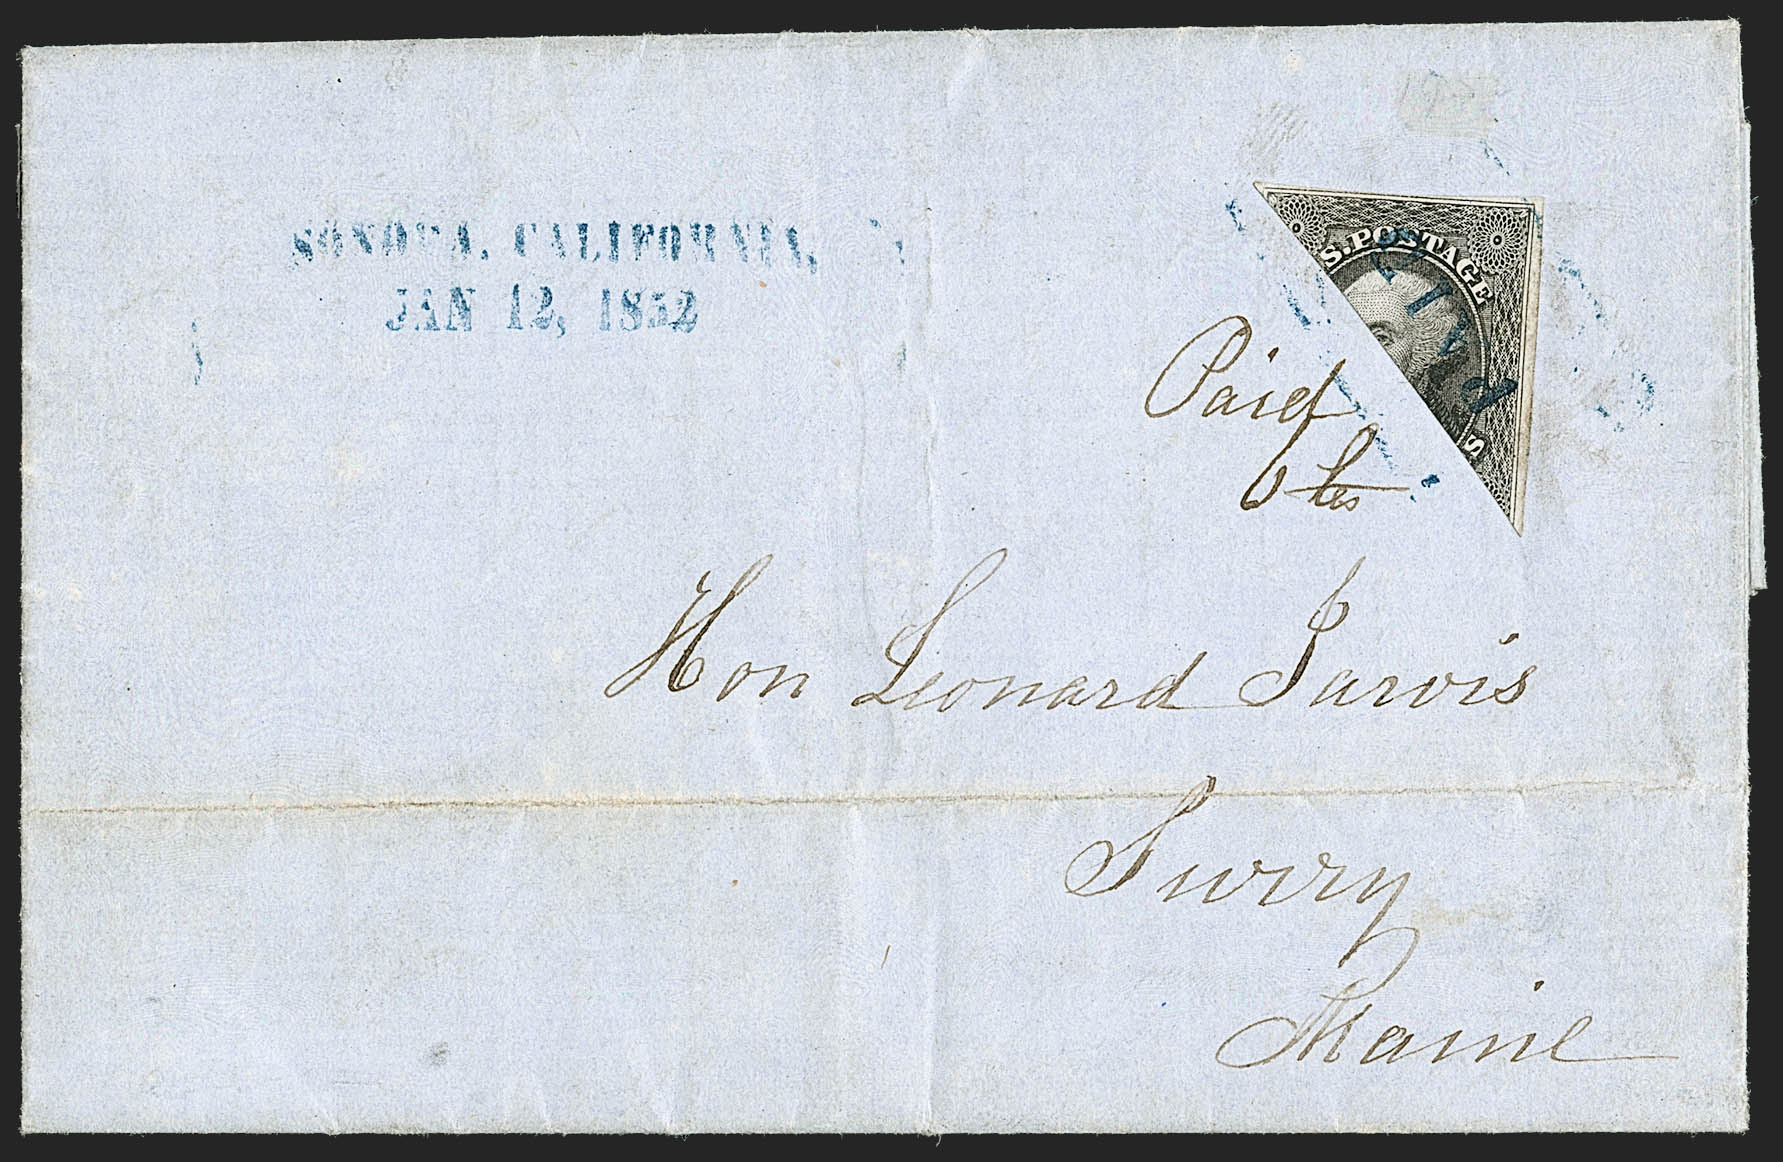 SONOMA, CALIFORNIA,
JAN 12, 1852
S. POSTAGE
PAID
S
Paid
6 cts
Hon Leonard Jarvis
Surry
Maine